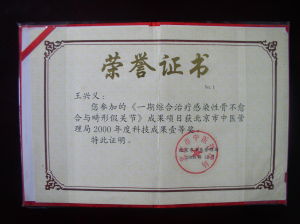 荣誉证书
No: 1
王兴义:
您参加的《一期综合治疗感染性骨不愈
合与畸形假关节》成果项目获北京市中医管
理局2000年度科技成果壹等奖。
特此证明。